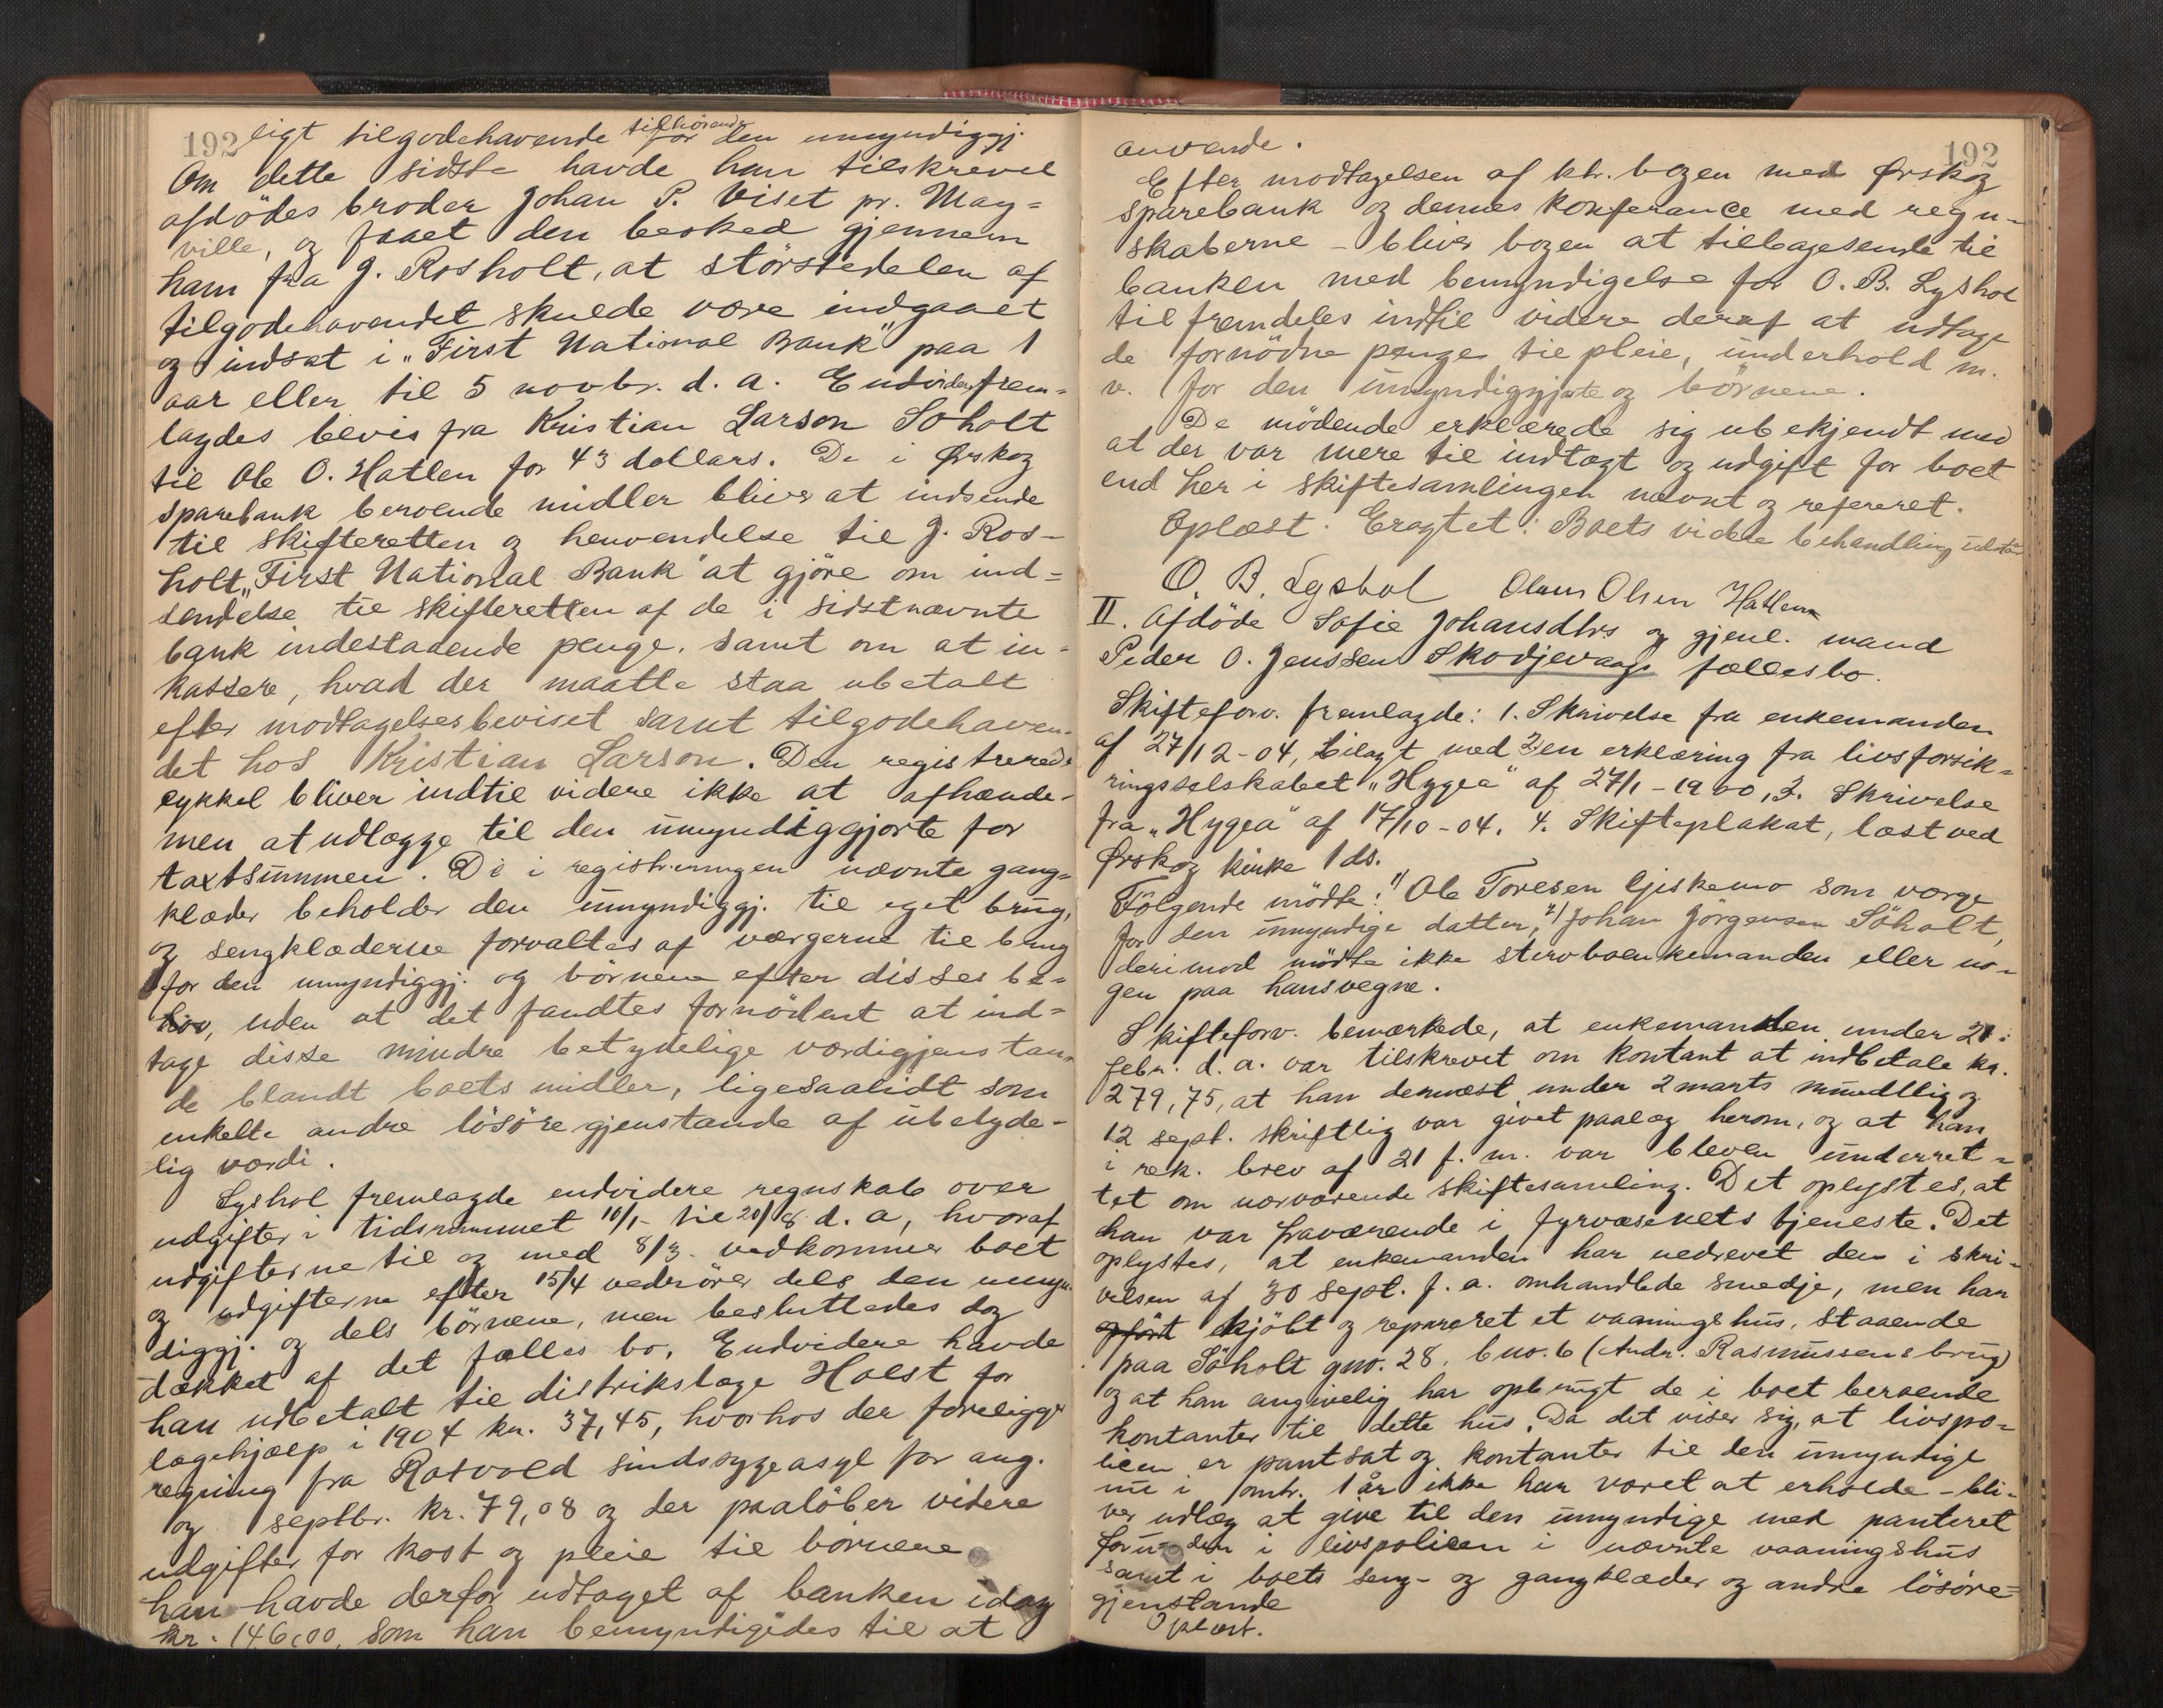 192
ligt tilgodehavende tilhörende for den umyndiggj.
Om dette sidste havde han tilskrevet
afdödes broder Johan P. Viset pr. May-
ville, og faaet den besked gjennem
ham fra J. Rosholt, at störstedelen af
tilgodehavendet skulde være indgaaet
og indsat i "First National Bank" paa 1
aar eller til 5 novbr. d. a. Endvidere frem-
lagdes bevis fra Kristian Larson Söholt
til Ole O. Hatlen for 43 dollars. De i Ørskog
sparebank beroende midler bliver at indsende
til skifteretten og henvendelse til J. Ros-
holt, "First National Bank" at gjöre om ind-
sendelse til skifteretten af de i sidstnævnte
bank indestaaende penge, samt om at in-
kassere, hvad der maatte staa ubetalt
efter modtagelsesbeviset samt tilgodehaven-
det hos Kristian Larson. Den registrerede
cykkel bliver indtil videre ikke at afhænde-
men at udlægge til den umyndiggjorte for
taxtsummen. De i registreringen nævnte gang-
klæder beholder den umyndiggj. til eget brug,
og sengklæderne forvaltes af værgerne til brug
for den umyndiggj. og börnene efter disses be-
hov, uden at det fandtes fornödent at ind-
tage disse mindre betydelige værdigjenstan-
de blandt boets midler, ligesaalidt som
enkelte andre lösöregjenstande af ubetyde-
lig værdi.
Lyshol fremlagde endvidere regnskab over
udgifter i tidsrummet 10/1- til 20/8 d. a, hvoraf
udgifterne til og med 8/3- vedkommer boet
og udgifterne efter 15/4 vedrörer dels den umyn-
diggj. og dels börnene, men besluttedes dog
dækket af det fælles bo. Endvidere havde
han udbetalt til distrikslæge Holst for
lægehjælp i 1904 kr. 37,45, hvorhos der foreligger
regning fra Rotvold sindssygeasyl for aug.
og septbr. kr. 79,08 og der paalöber videre
udgifter for kost og pleie til börnene
han havde derfor udtaget af banken idag
kr. 146,00, som han bemyndigedes til at
192
anvende.
Efter modtagelsen af ktr. bogen med Ørskog
Sparebank og dennes konferance med regn-
skaberne - bliver bogen at tilbagesende til
banken med bemyndigelse for O. B. Lyshol
til fremdeles indtil videre deraf at udtage
de fornödne penge til pleie, underhold m.
v. for den umyndiggjorte og börnene.
De mödende erklærede sig ubekjendt med
at der var mere til indtægt og udgift for boet
end her i skiftesamlingen nævnt og refereret.
Oplæst. Eragtet: Boets videre behandling udstår
O. B. Lyshol Olaus Olsen Hatlem
II. Afdöde Sofie Johansdtrs og gjenl. mand
Peder O. Jenssen Skodjevaags fællesbo.
Skifteforv. fremlagde: 1. Skrivelse fra enkemanden
af 27/12-04, bilagt med 2) en erklæring fra livsforsik-
ringsselskabet "Hygea" af 27/1-1900, 3. Skrivelse
fra "Hygea" af 17/10-04. 4. Skifteplakat, læst ved
Ørskog kirke 1 ds.
Fölgende mödte: 1) Ole Toresen Gjiskemo som værge
for den umyndige datter, 2) Johan Jörgensen Söholt,
derimod mödte ikke stervboenkemanden eller no-
gen paa hans vegne.
Skifteforv. bemærkede, at enkemanden under 21
febr. d. a. var tilskrevet om kontant at indbetale kr.
279,75, at han dernæst under 2 marts mundtlig og
12 sept. skriftlig var givet paalæg herom, og at han
i rek. brev af 21 f. m. var bleven underret-
tet om nærværende skiftesamling. Det oplystes, at
han var fraværende i fyrvæsenets tjeneste. Det
oplystes, at enkemanden har nedrevet den i skri-
velsen af 30 sept. f. a. omhandlede smedje, men har
opfört kjöbt og repareret et vaaningshus, staaende
paa Söholt gno. 28, bno. 6 (Andr. Rasmussens brug)
og at han angivelig har opbrugt de i boet beroende
kontanter til dette hus. Da det viser sig, at livspo-
licen er pantsat og kontanter til den umyndige
nu i omtr. 1 år ikke har været at erholde - bli-
ver udlæg at give til den umyndige med panteret
foruden i livspolicen i nævnte vaaningshus
samt i boets seng- og gangklæder og andre lösöre-
gjenstande
Oplæst.